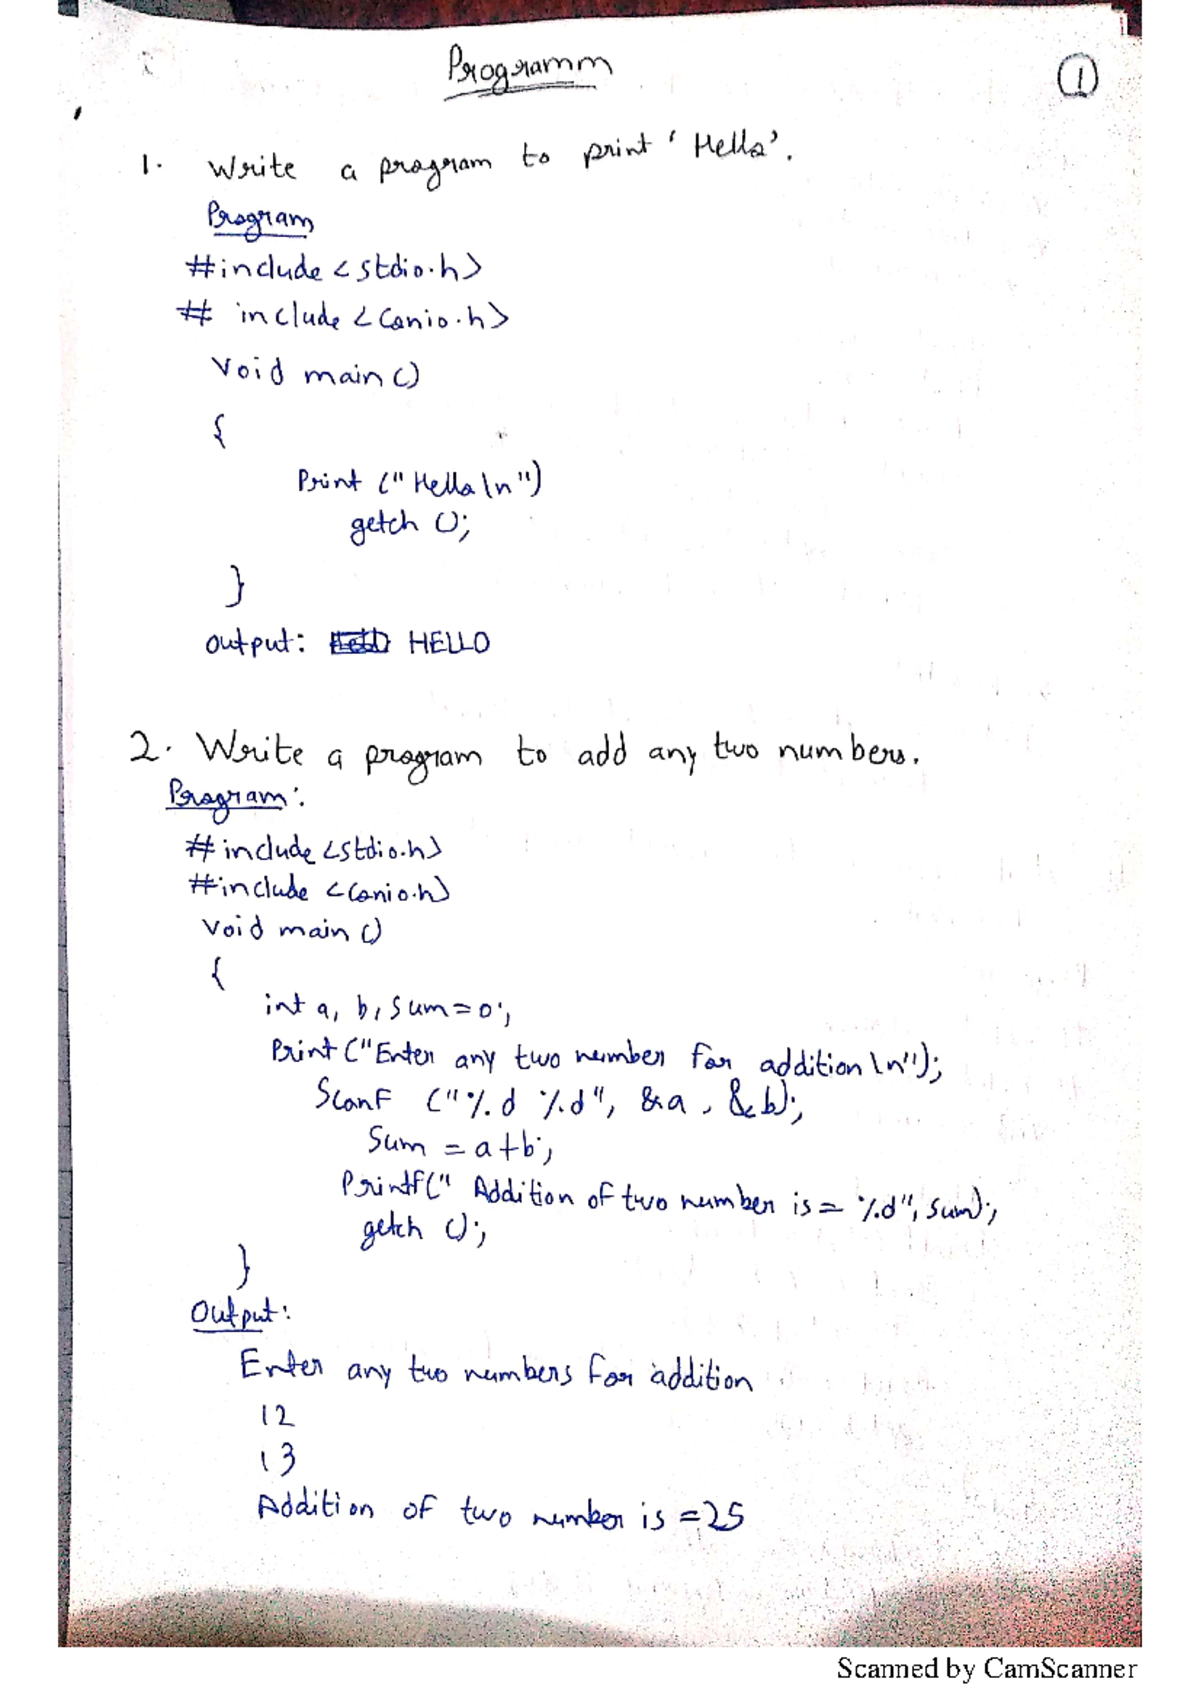 Programm
1
1. Write a program to print 'Hello'.
Program
#include <stdio.h>
# include <conio.h>
Void main ()
{
Print ("Hello \n")
getch ();
}
output: HELLO
2. Write a program to add any two numbers.
Program:
# include <stdio.h>
#include <conio.h>
Void main ()
{
int a, b, Sum=0;
Print ("Enter any two number for addition \n");
Scanf ("%d %d", &a, &b);
Sum = a+b;
Printf(" Addition of two number is = %d", Sum);
getch ();
}
Output:
Enter any two numbers for addition
12
13
Addition of two number is =25
Scanned by CamScanner